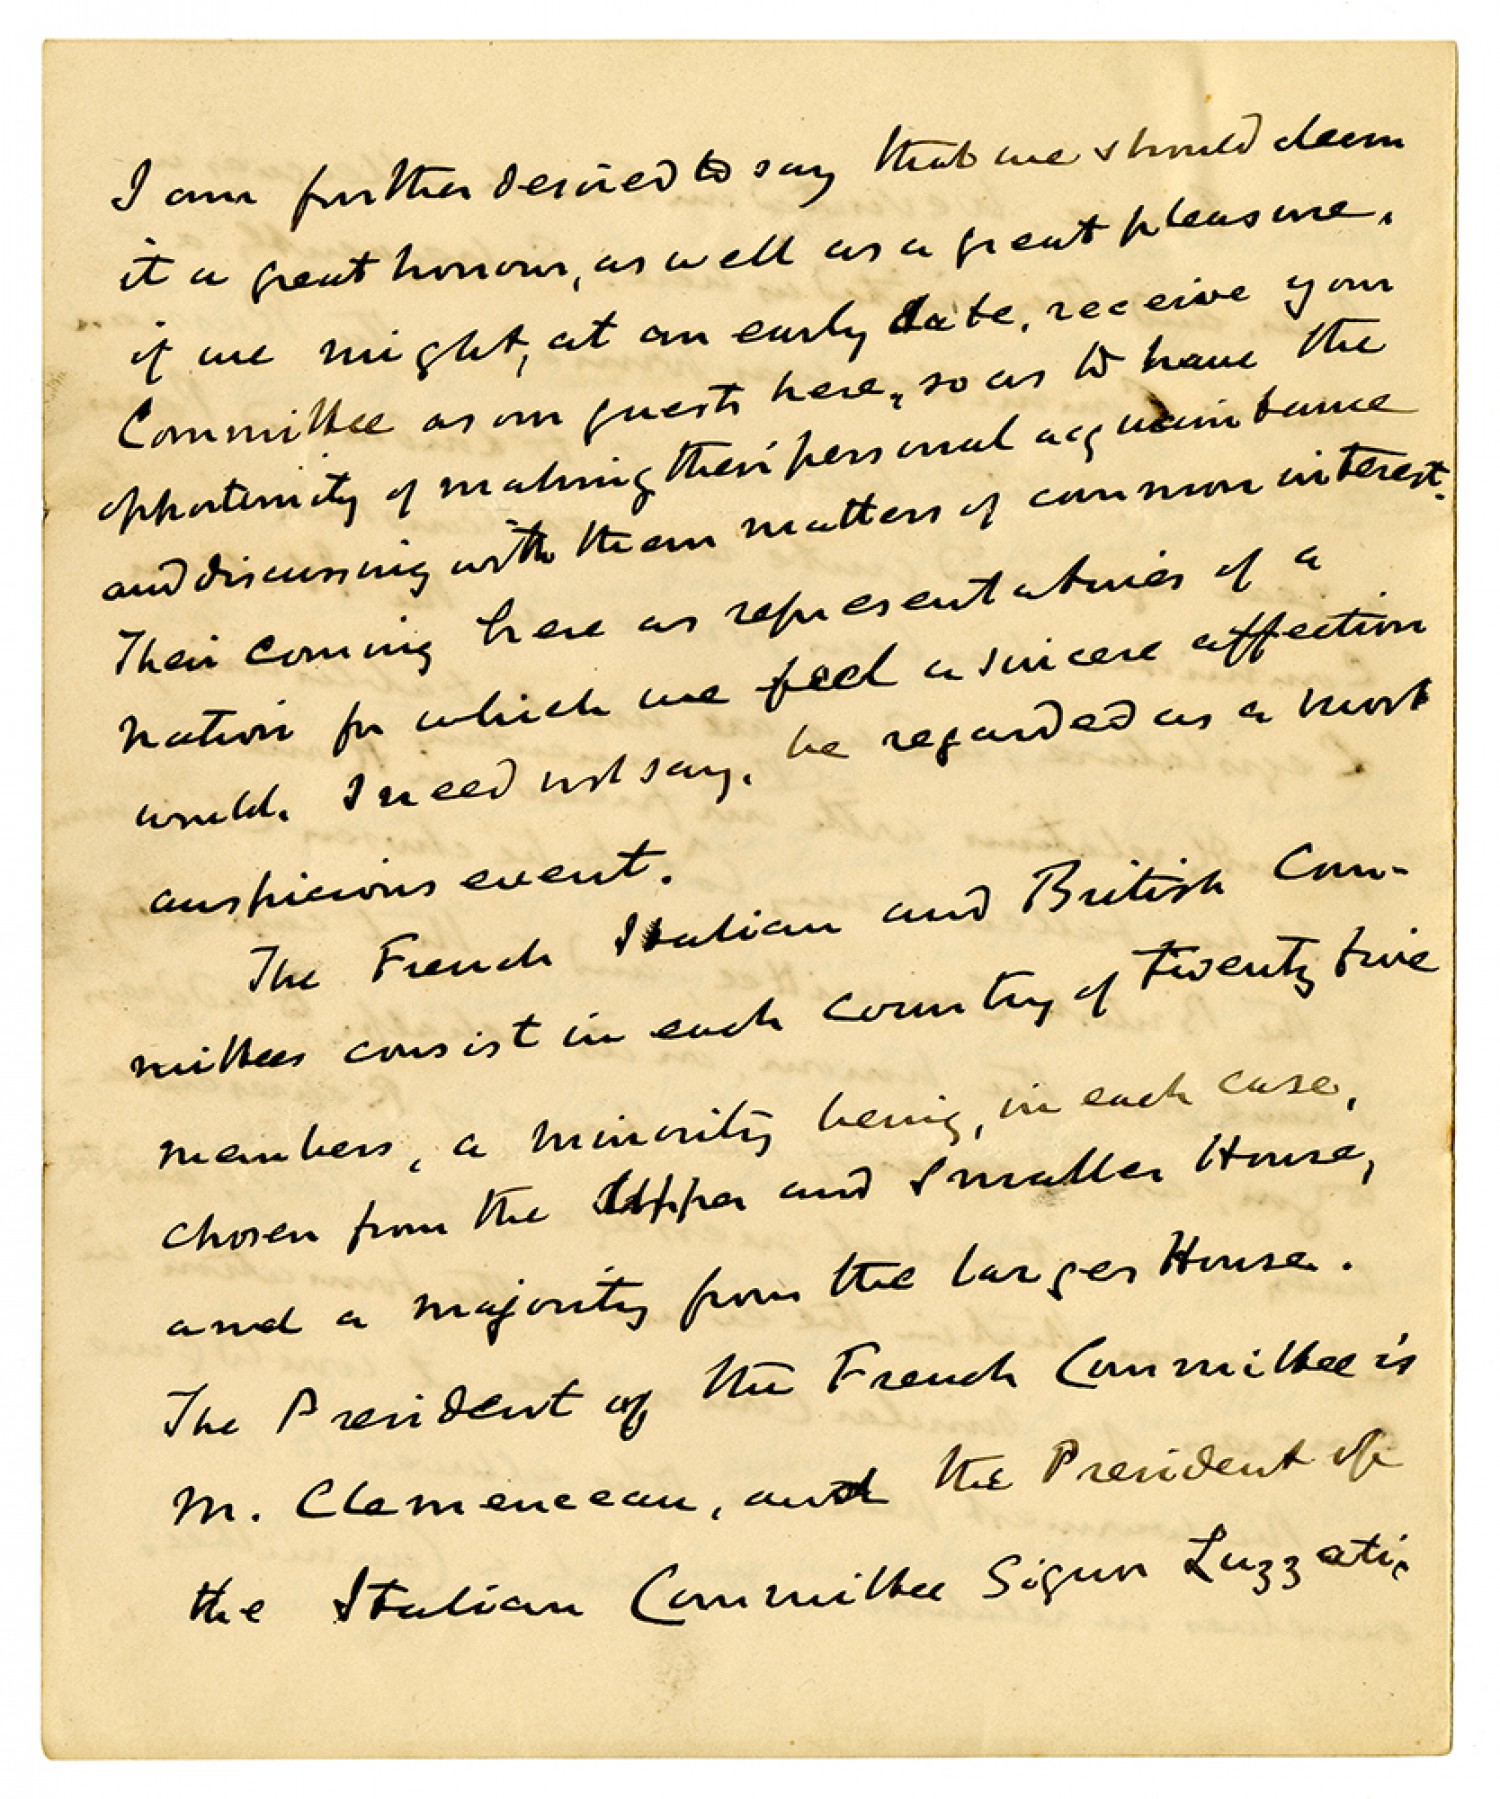 I am further desired to say that we should deem
it a great honour, as well as a great pleasure,
if we might, at an early date, receive your
Committee as our guests here, so as to have the
opportunity of making their personal acquaintance
and discussing with them matters of common interest.
Their coming here as representatives of a
nation for which we feel a sincere affection
would, I need not say, be regarded as a most
auspicious event.
The French Italian and British Com-
mittees consist in each country of twenty five
members, a minority being, in each case,
chosen from the Upper and smaller House,
and a majority from the larger House.
The President of the French Committee is
M. Clemenceau, and the President of
the Italian Committee Signor Luzzati,